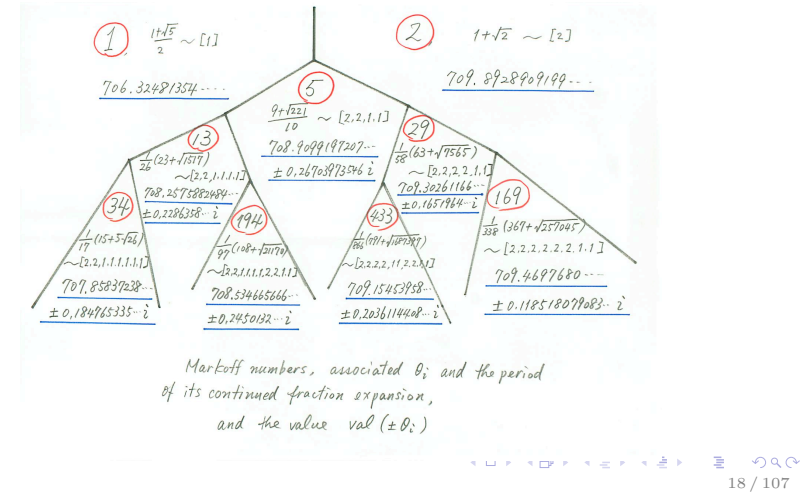 1, (1+√5)/2 ~ [1]
706.32481354⋯⋯
2, 1+√2 ~ [2]
709.8928909199⋯⋯
5
(9+√221)/10 ~ [2,2,1,1]
708.9099197207⋯
±0.26703973546 i
13
1/26 (23+√1517)
~[2,2,1,1,1,1]
708.2575882484⋯
±0.2286358⋯i
29
1/58 (63+√7565)
~[2,2,2,2,1,1]
709.30261166⋯
±0.1651964⋯i
34
1/17 (15+5√26)
~[2,2,1,1,1,1,1,1]
707.85837238⋯
±0.184765335⋯i
194
1/97 (108+√21170)
~[2,2,1,1,1,1,2,2,1,1]
708.534665666⋯
±0.2450132⋯i
433
~[2,2,2,2,1,1,2,2,1,1]
709.15453958⋯
±0.2036114408⋯i
169
1/338 (367+√257045)
~[2,2,2,2,2,2,1,1]
709.4697680⋯⋯
±0.118518079083⋯i
Markoff numbers, associated θi and the period
of its continued fraction expansion,
and the value val(±θi)
18 / 107